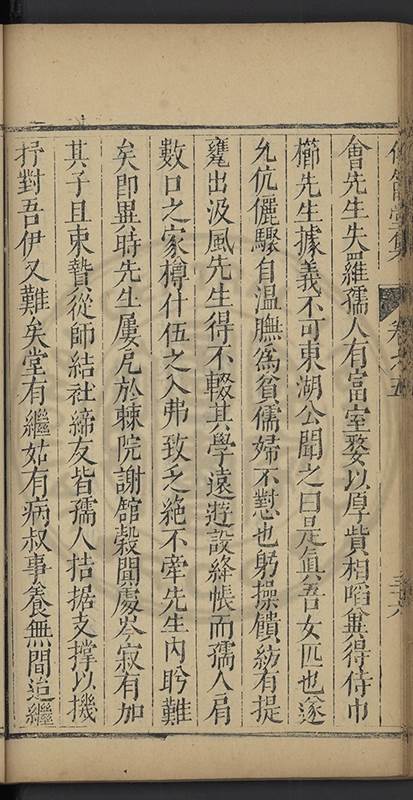 會先生失羅孺人有富室婺以厚貲相啗兼得侍巾
櫛先生據義不可東湖公聞之曰是眞吾女匹也遂
允伉儷驟自溫膴爲貧儒婦不懟也躬操饋紡有提
甕出汲風先生得不輟其學遠遊設絳帳而孺人肩
數口之家樽什伍之入弗致乏絶不牽先生內盻難
矣卽異時先生屢戹於棘院謝館穀閒處岑寂有加
其子且束贄從師結社締友皆孺人拮据支撐以機
抒對吾伊又難矣堂有繼姑有病叔事養無間迨繼
集 卷之五 三十六